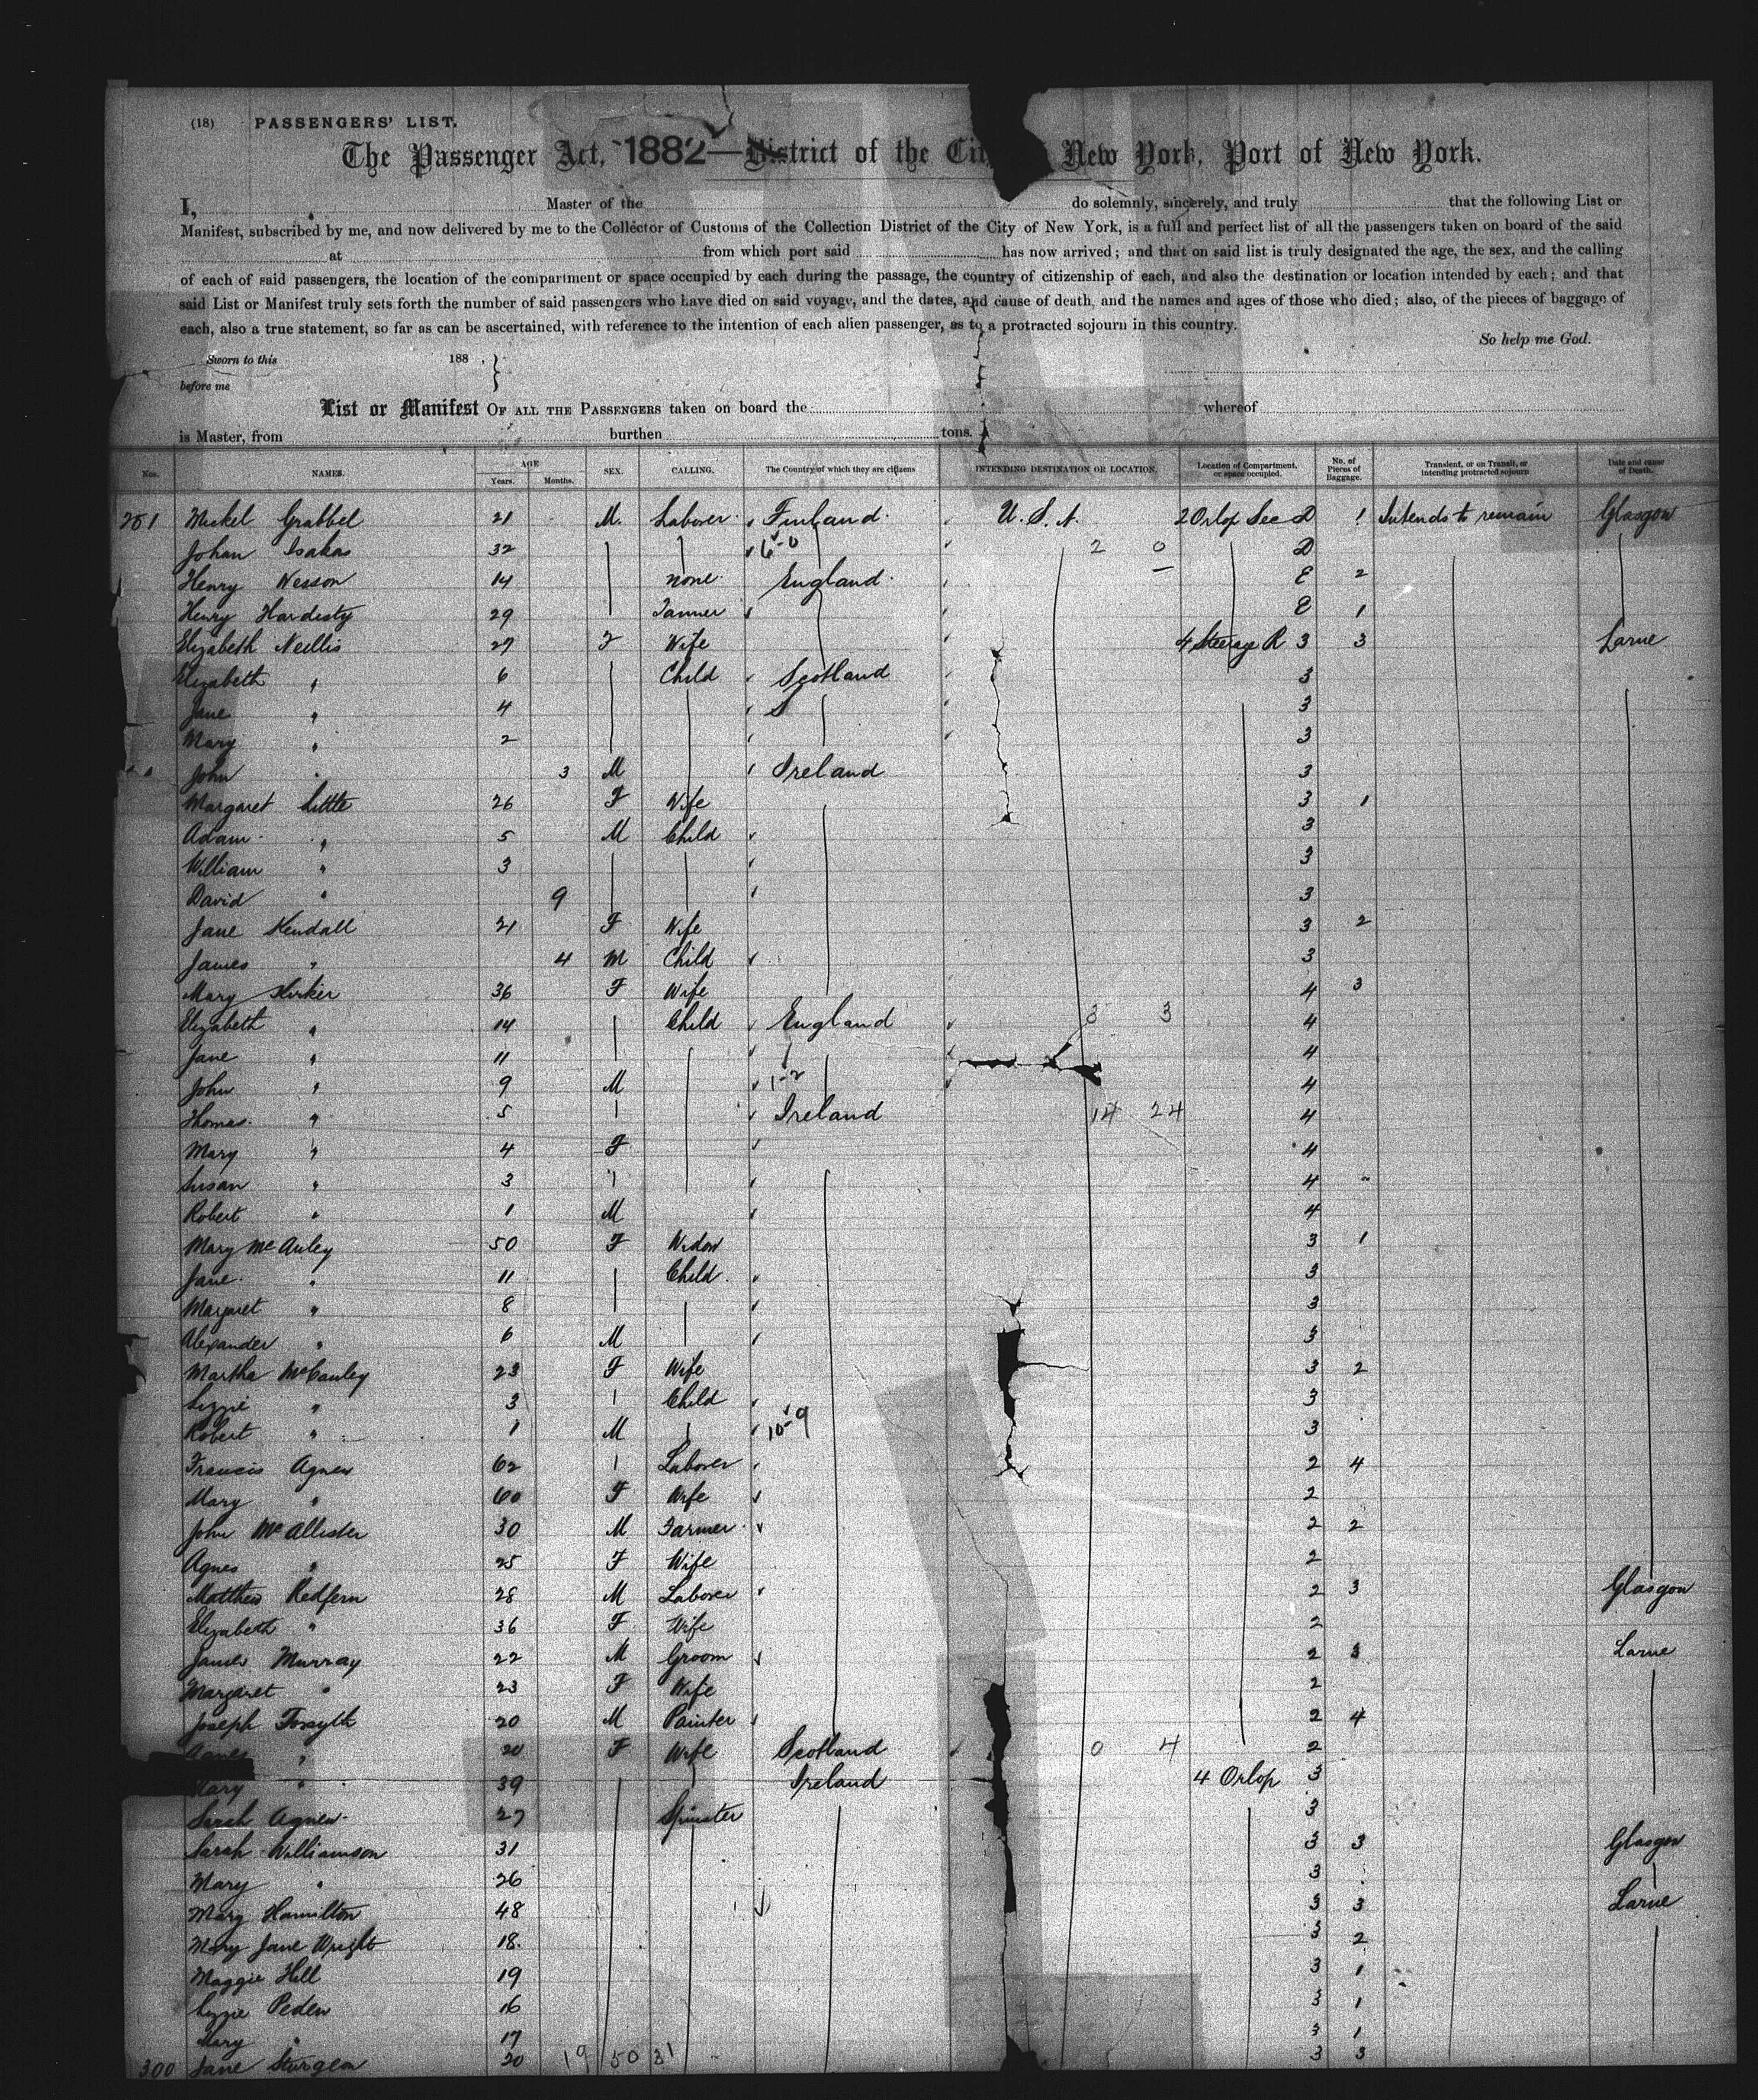 (18) PASSENGERS' LIST.
The Passenger Act, 1882—District of the City New York, Port of New York.
I, Master of the do solemnly, sincerely, and truly that the following List or
Manifest, subscribed by me, and now delivered by me to the Collector of Customs of the Collection District of the City of New York, is a full and perfect list of all the passengers taken on board of the said
at from which port said has now arrived; and that on said list is truly designated the age, the sex, and the calling
of each of said passengers, the location of the compartment or space occupied by each during the passage, the country of citizenship of each, and also the destination or location intended by each; and that
said List or Manifest truly sets forth the number of said passengers who have died on said voyage, and the dates, and cause of death, and the names and ages of those who died; also, of the pieces of baggage of
each, also a true statement, so far as can be ascertained, with reference to the intention of each alien passenger, as to a protracted sojourn in this country.
So help me God.
Sworn to this 188
before me
List or Manifest OF ALL THE PASSENGERS taken on board the whereof
is Master, from burthen tons.
Nos. NAMES. AGE Years. Months. SEX. CALLING. The Country of which they are citizens INTENDING DESTINATION OR LOCATION. Location of Compartment, or space occupied. No. of Pieces of Baggage. Transient, or on Transit, or intending protracted sojourn Date and cause of Death.
251 Mickel Grabbel 21 M. Laborer Finland U.S.A. 2 Orlop Sec D 1 Intends to remain Glasgow
Johan Isakas 32 6-0 2 0 D
Henry Wesson 14 none England E 2
Henry Hardesty 29 Tanner E 1
Elizabeth Neillis 27 F Wife 4 Steerage R 3 3 Larne
Elizabeth " 6 Child Scotland 3
Jane " 4 3
Mary " 2 3
John 3 M Ireland 3
Margaret Little 26 F Wife 3 1
Adam " 5 M Child 3
William " 3 3
David " 9 3
Jane Kendall 21 F Wife 3 2
James " 4 M Child 3
Mary Kirker 36 F Wife 4 3
Elizabeth " 14 Child England 3 3 4
Jane " 11 4
John " 9 M 1-2 4
Thomas " 5 Ireland 14 24 4
Mary " 4 F 4
Susan " 3 4
Robert " 1 M 4
Mary McAuley 50 F Widow 3 1
Jane " 11 Child 3
Margaret " 8 3
Alexander " 6 M 3
Martha McCauley 23 F Wife 3 2
Lizzie " 3 Child 3
Robert " 1 M 10-9 3
Francis Agnew 62 Laborer 2 4
Mary " 60 F Wife 2
John McAllister 30 M Farmer 2 2
Agnes " 25 F Wife 2
Matthew Redfern 28 M Laborer 2 3 Glasgow
Elizabeth " 36 F Wife 2
James Murray 22 M Groom 2 3 Larne
Margaret " 23 F Wife 2
Joseph Forsyth 20 M Painter 2 4
Agnes " 20 F Wife Scotland 0 4 2
Mary " 39 Ireland 4 Orlop 3
Sarah Agnew 27 Spinster 3
Sarah Williamson 31 3 3 Glasgow
Mary " 26 3
Mary Hamilton 48 3 3 Larne
Mary Jane Wright 18 3 2
Maggie Hill 19 3 1
Lizzie Peden 16 3 1
Mary " 17 3 1
300 Jane Sturgeon 20 19 50 31 3 3